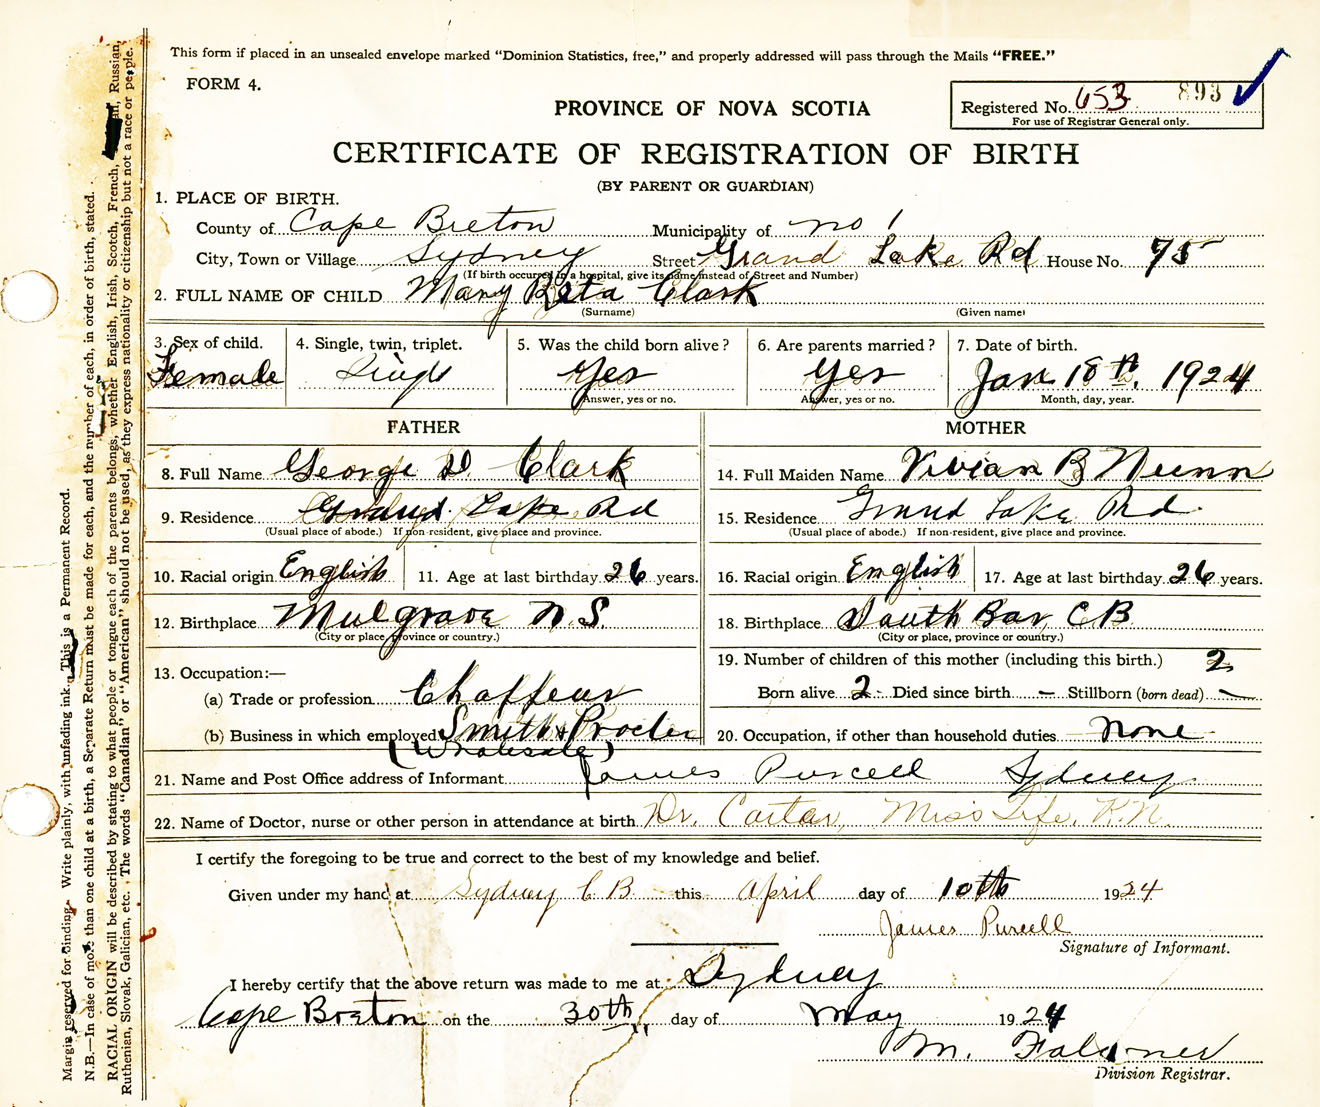 This form if placed in an unsealed envelope marked “Dominion Statistics, free,” and properly addressed will pass through the Mails “FREE.”
FORM 4.
PROVINCE OF NOVA SCOTIA
Registered No. 653 893
For use of Registrar General only.
CERTIFICATE OF REGISTRATION OF BIRTH
(BY PARENT OR GUARDIAN)
1. PLACE OF BIRTH.
County of Cape Breton Municipality of no 1
City, Town or Village Sydney Street Grand Lake Rd House No. 75
(If birth occurred in a hospital, give its name instead of Street and Number)
2. FULL NAME OF CHILD Mary Reta Clark
(Surname) (Given name)
3. Sex of child. 4. Single, twin, triplet. 5. Was the child born alive? 6. Are parents married? 7. Date of birth.
Female Single Yes Yes Jan 18th, 1924
Answer, yes or no. Answer, yes or no. Month, day, year.
FATHER MOTHER
8. Full Name George D. Clark 14. Full Maiden Name Vivian B Nunn
9. Residence Grand Lake Rd 15. Residence Grand Lake Rd
(Usual place of abode.) If non-resident, give place and province. (Usual place of abode.) If non-resident, give place and province.
10. Racial origin English 11. Age at last birthday 26 years. 16. Racial origin English 17. Age at last birthday 26 years.
12. Birthplace Mulgrave N.S. 18. Birthplace South Bar C B
(City or place, province or country.) (City or place, province or country.)
13. Occupation:— 19. Number of children of this mother (including this birth.) 2
(a) Trade or profession Chaffeur Born alive 2 Died since birth — Stillborn (born dead) —
(b) Business in which employed Smith & Procter 20. Occupation, if other than household duties None
(Wholesale)
21. Name and Post Office address of Informant James Purcell Sydney
22. Name of Doctor, nurse or other person in attendance at birth Dr. Carter, Miss R.N.
I certify the foregoing to be true and correct to the best of my knowledge and belief.
Given under my hand at Sydney C B this April day of 10th 1924
James Purcell
Signature of Informant.
I hereby certify that the above return was made to me at Sydney
Cape Breton on the 30th day of May 1924
M. Falconer
Division Registrar.
Margin reserved for binding. Write plainly, with unfading ink. This is a Permanent Record.
N.B.—In case of more than one child at a birth, a Separate Return must be made for each, and the number of each, in order of birth, stated.
RACIAL ORIGIN will be described by stating to what people or tongue each of the parents belongs, whether English, Irish, Scotch, French, Russian,
Ruthenian, Slovak, Galician, etc. The words “Canadian” or “American” should not be used, as they express nationality or citizenship but not a race or people.